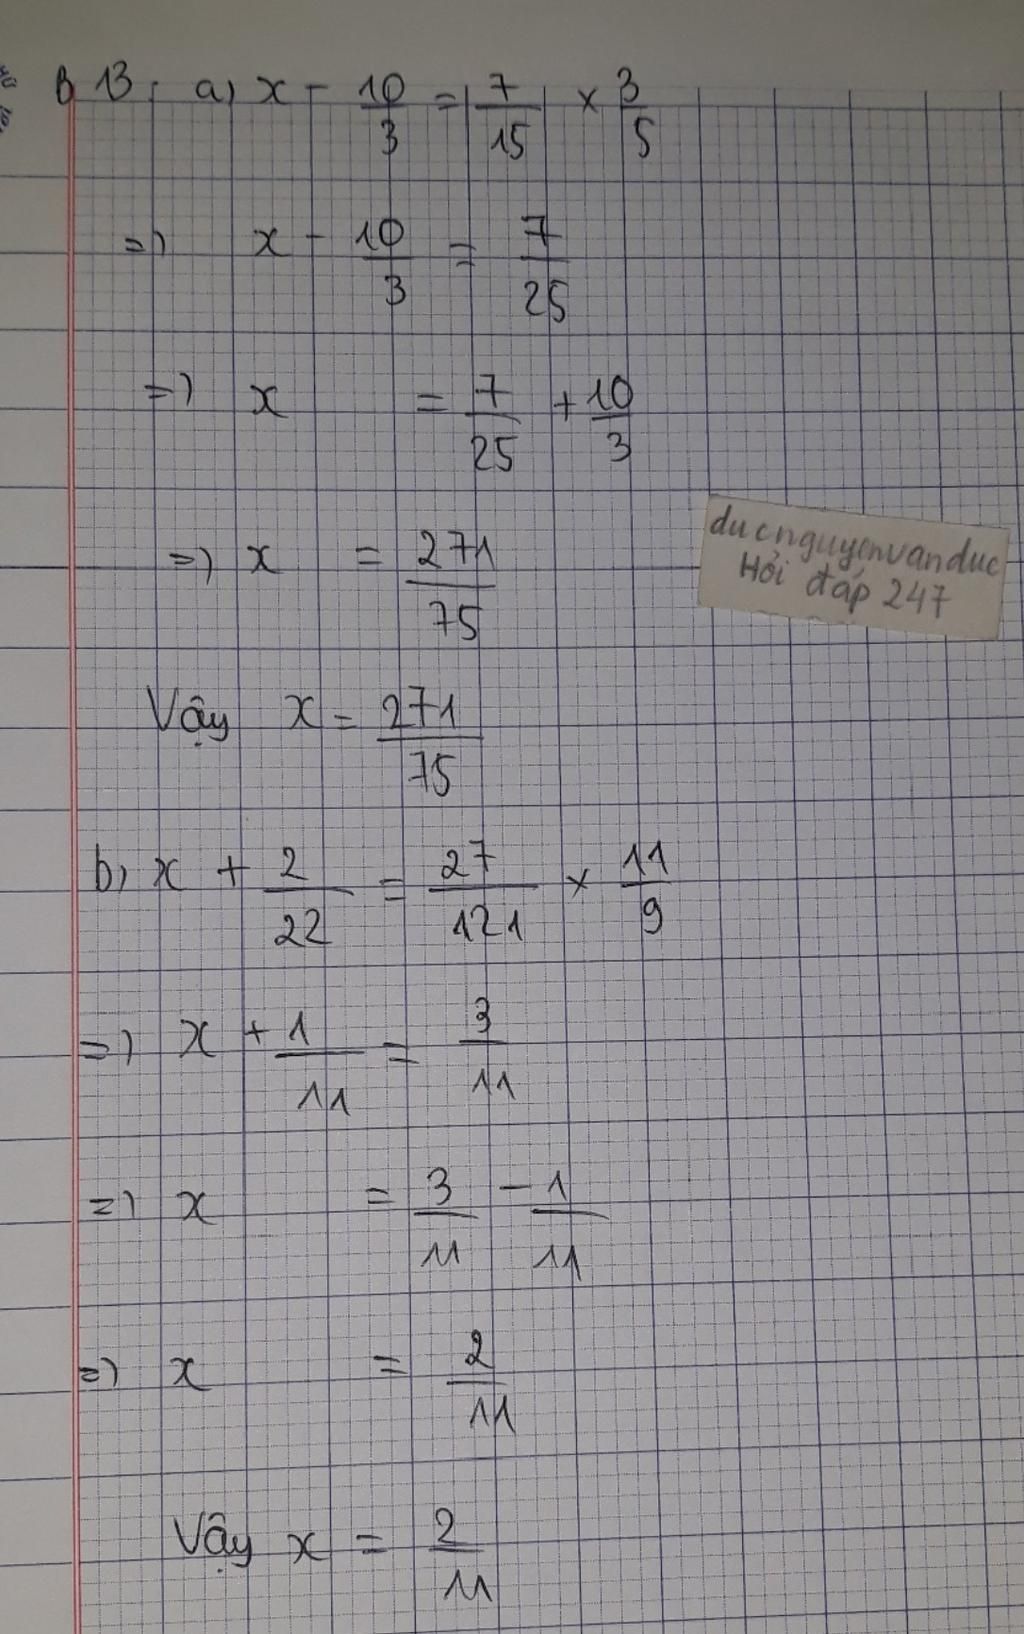 B 13: a) x - 10/3 = 7/15 × 3/5
=> x - 10/3 = 7/25
=> x = 7/25 + 10/3
=> x = 271/75
ducnguyenvanduc
Hỏi đáp 247
Vậy x = 271/75
b) x + 2/22 = 27/121 × 11/9
=> x + 1/11 = 3/11
=> x = 3/11 - 1/11
=> x = 2/11
Vậy x = 2/11